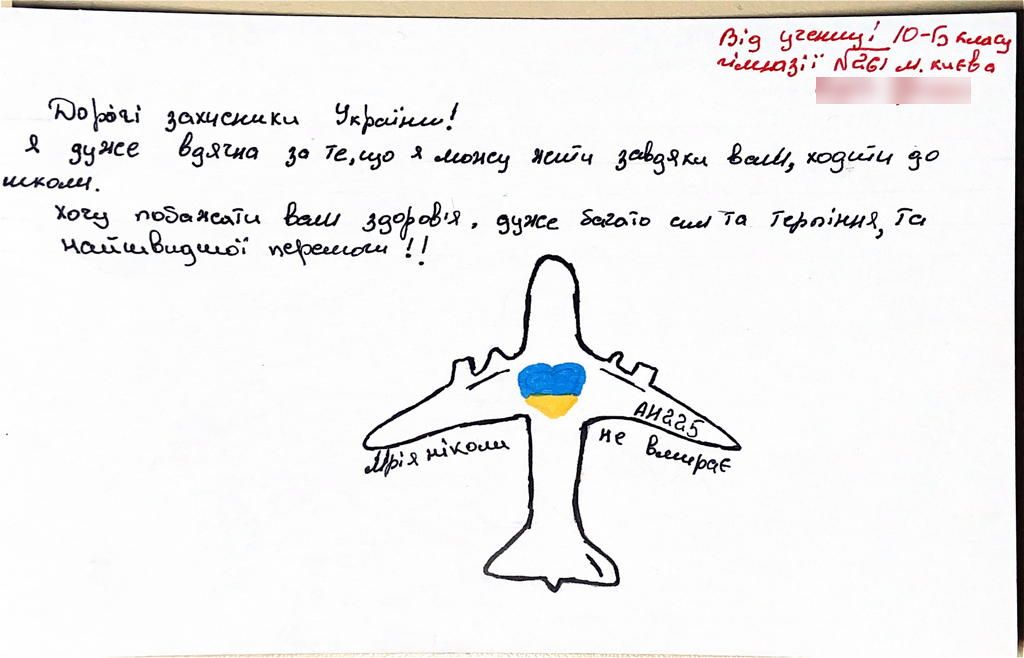 Від учениці 10-Б класу
гімназії №261 м. києва
Дорогі захисники України!
Я дуже вдячна за те, що я можу жити завдяки вам, ходити до
школи.
Хочу побажати вам здоров'я, дуже багато сил та терпіння, та
найшвидшої перемоги!!
АН225
Мрія ніколи не вмирає